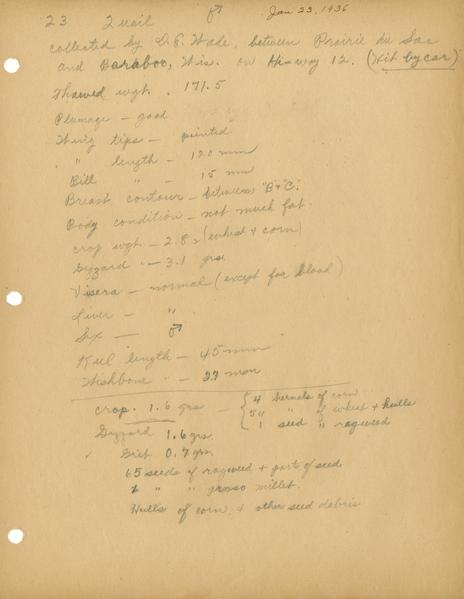 23 Quail ♂ Jan 23, 1936
collected by D. E. Wade, between Prairie du Sac
and Baraboo, Wis. on Hi-way 12. (Hit by car)
Thawed wght. 171.5
Plumage - good
Wing tips - pointed
" length - 120 mm
Bill " - 15 mm
Breast contour - between "B" + "C".
Body condition - not much fat.
crop wght - 2.8 (wheat + corn)
Gizzard " - 3.1 grs.
Visera - normal (except for blood)
Liver - "
Sex - ♂
Keel length - 45 mm
Wishbone " - 27 mm
Crop. 1.6 grs - { 4 kernels of corn
5 " of wheat + hulls
1 seed " ragweed
Gizzard 1.6 grs.
✓ Grit 0.7 grs.
65 seeds of ragweed + parts of seed
" " proso millet.
Hulls of corn & other seed debris